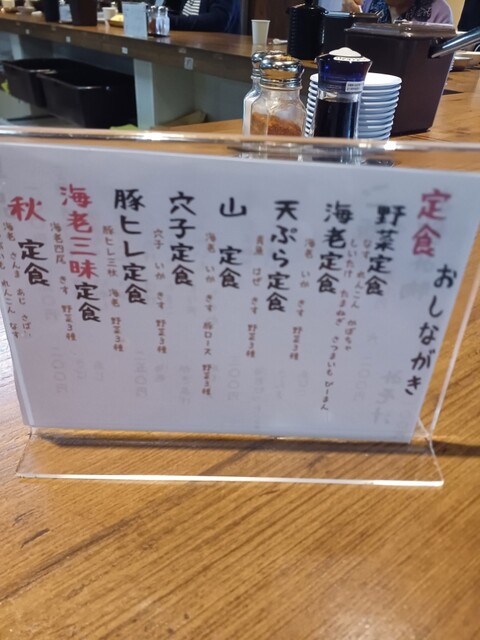 定食 おしながき
野菜定食
なす れんこん かぼちゃ
しいたけ たまねぎ さつまいも ぴーまん
海老定食
海老 いか きす 野菜3種
天ぷら定食
はぜ きす 野菜3種
山 定食
海老 いか きす 豚ロース 野菜3種
穴子定食
穴子 いか きす 野菜3種
豚ヒレ定食
豚ヒレ三秋 海老 野菜3種
海老三昧定食
海老四尾 きす 野菜3種
秋 定食
海老 さんま あじ さば
れんこん なす